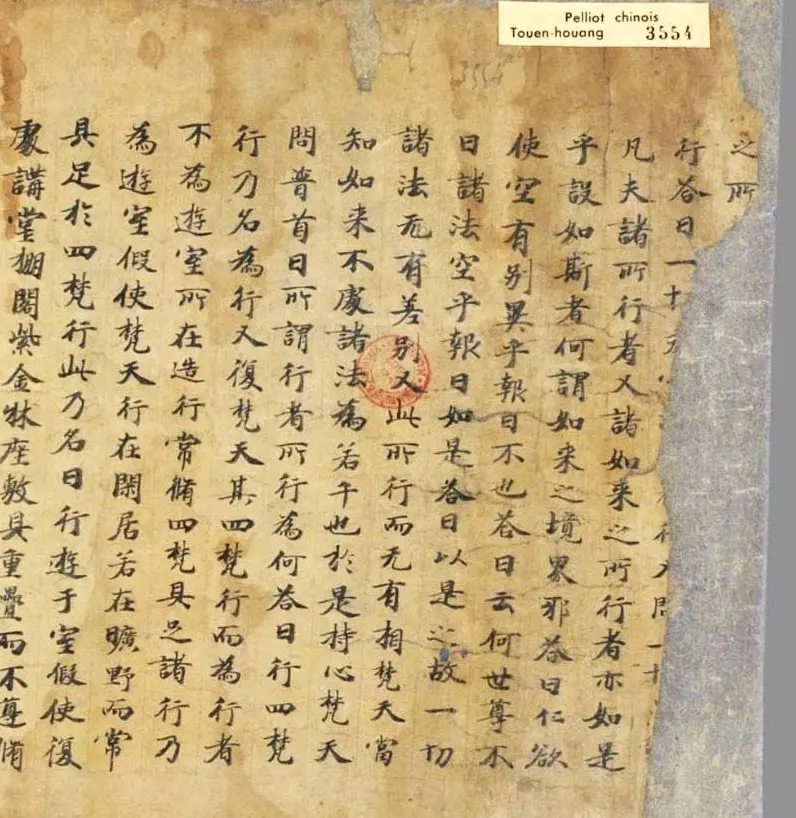 Pelliot chinois
Touen-houang 3554
3554
之所
行答曰一
凡夫諸所行者又諸如来之所行者亦如是
乎設如斯者何謂如来之境界邪答曰仁欲
使空有別異乎報曰不也答曰云何世尊不
曰諸法空乎報曰如是答曰以是之故一切
諸法无有差別又此所行而无有相梵天當
知如来不處諸法為若干也於是持心梵天
問普首曰所謂行者所行為何答曰行四梵
行乃名為行又復梵天其四梵行而為行者
不為遊室所在造行常脩四梵具足諸行乃
為遊室假使梵天行在閑居若在曠野而常
具足於四梵行此乃名曰行遊于室假使復
處講堂棚閣紫金牀座敷具重疊而不遵脩